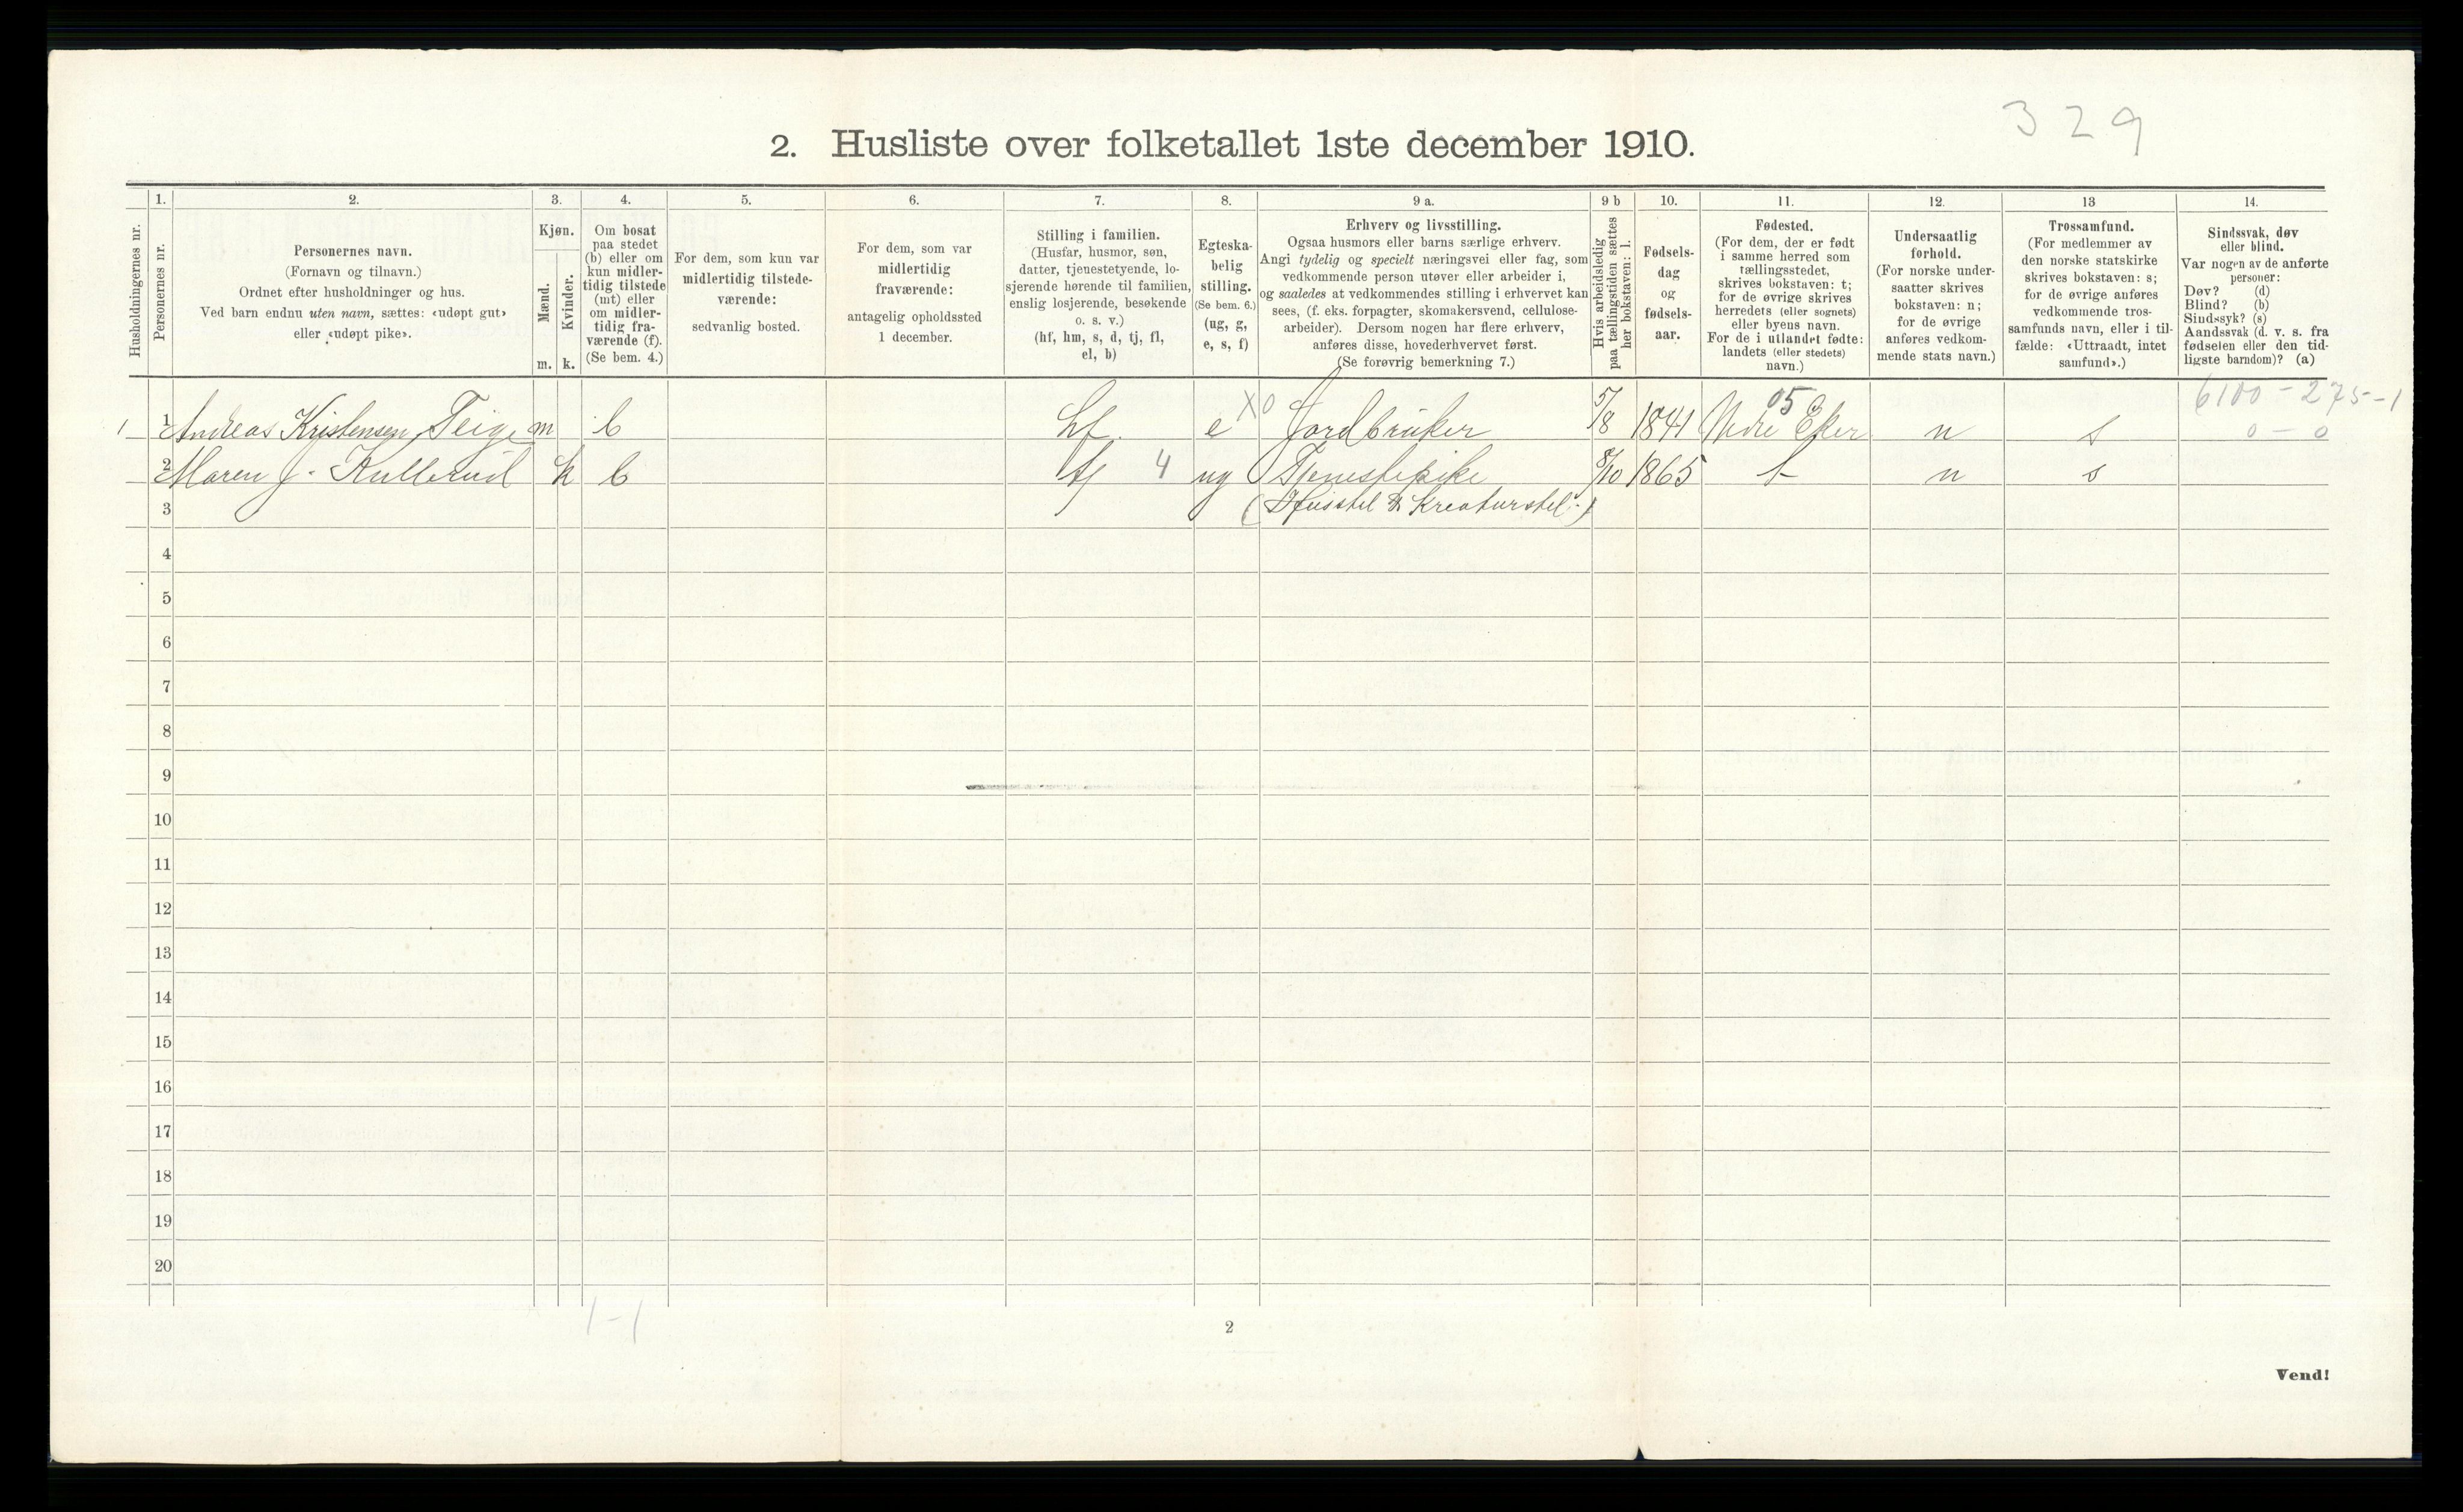 329
2. Husliste over folketallet 1ste december 1910.
Husholdningernes nr.
1.
Personernes nr.
2.
Personernes navn.
(Fornavn og tilnavn.)
Ordnet efter husholdninger og hus.
Ved barn endnu uten navn, sættes: «udøpt gut»
eller «udøpt pike».
3.
Kjøn.
Mænd.
m.
Kvinder.
k.
4.
Om bosat
paa stedet
(b) eller om
kun midler-
tidig tilstede
(mt) eller
om midler-
tidig fra-
værende (f).
(Se bem. 4.)
5.
For dem, som kun var
midlertidig tilstede-
værende:
sedvanlig bosted.
6.
For dem, som var
midlertidig
fraværende:
antagelig opholdssted
1 december.
7.
Stilling i familien.
(Husfar, husmor, søn,
datter, tjenestetyende, lo-
sjerende hørende til familien,
enslig losjerende, besøkende
o. s. v.)
(hf, hm, s, d, tj, fl,
el, b)
8.
Egteska-
belig
stilling.
(Se bem. 6.)
(ug, g,
e, s, f)
9 a.
Erhverv og livsstilling.
Ogsaa husmors eller barns særlige erhverv.
Angi tydelig og specielt næringsvei eller fag, som
vedkommende person utøver eller arbeider i,
og saaledes at vedkommendes stilling i erhvervet kan
sees, (f. eks. forpagter, skomakersvend, cellulose-
arbeider). Dersom nogen har flere erhverv,
anføres disse, hovederhvervet først.
(Se forøvrig bemerkning 7.)
9 b
Hvis arbeidsledig
paa tællingstiden sættes
her bokstaven: l.
10.
Fødsels-
dag
og
fødsels-
aar.
11.
Fødested.
(For dem, der er født
i samme herred som
tællingsstedet,
skrives bokstaven: t;
for de øvrige skrives
herredets (eller sognets)
eller byens navn.
For de i utlandet fødte:
landets (eller stedets)
navn.)
12.
Undersaatlig
forhold.
(For norske under-
saatter skrives
bokstaven: n;
for de øvrige
anføres vedkom-
mende stats navn.)
13
Trossamfund.
(For medlemmer av
den norske statskirke
skrives bokstaven: s;
for de øvrige anføres
vedkommende tros-
samfunds navn, eller i til-
fælde: «Uttraadt, intet
samfund».)
14.
Sindssvak, døv
eller blind.
Var nogen av de anførte
personer:
Døv? (d)
Blind? (b)
Sindssyk? (s)
Aandssvak (d. v. s. fra
fødselen eller den tid-
ligste barndom)? (a)
X0 05 6100-275-1
1 1 Andreas Kristensen Teige m b hf. e Jordbruker 5/8 1841 Nedre Eker n s 0-0
2 Maren J. Kullerud k b tj 4 ug Tjenestepike 8/10 1865 t n s
3 (Husstel & Kreaturstel.)
4
5
6
7
8
9
10
11
12
13
14
15
16
17
18
19
20
1-1
2
Vend!